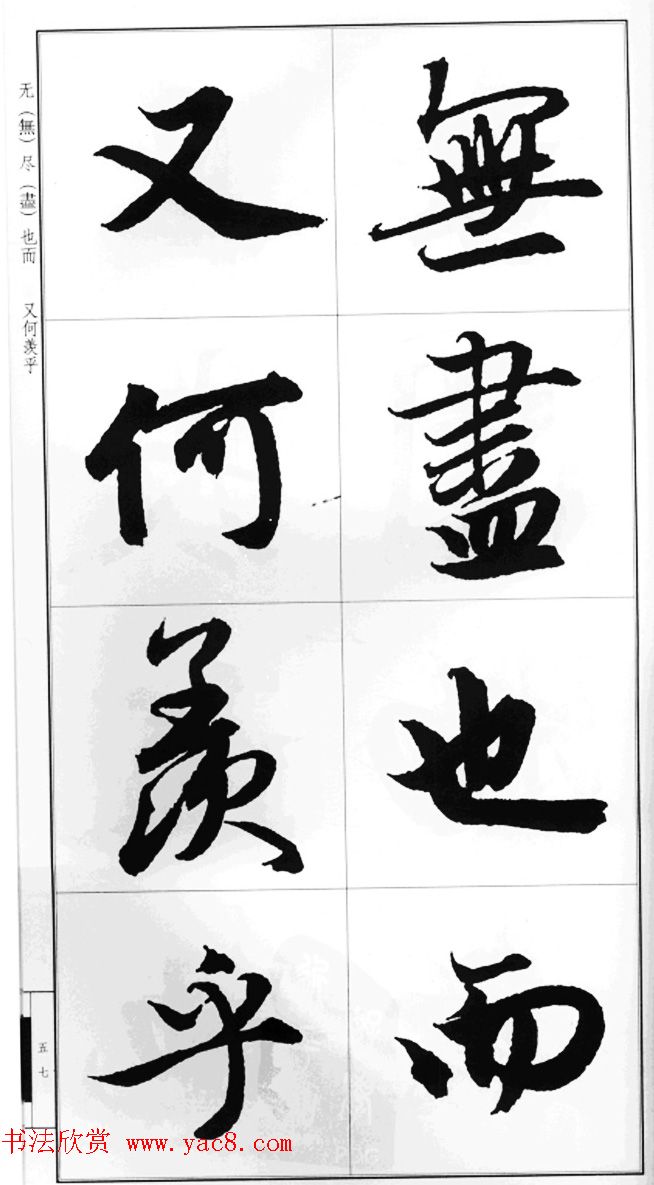 無盡也而
又何羨乎
无（無）尽（盡）也而 又何羨乎
五七
书法欣赏 www.yac8.com